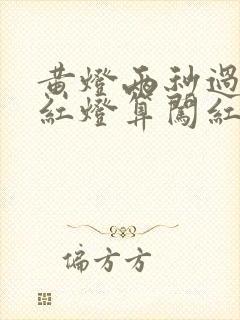 黄燈兩秒過
紅燈算闖紅
偏方方